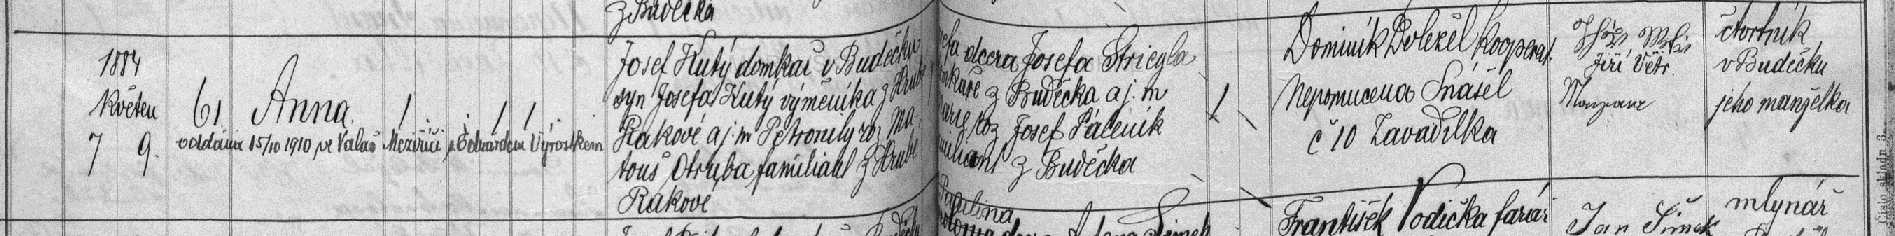 z Budečka
1884
Květen
7 9.
61. Anna.
oddána 15/10 1910 ve Valaš. Meziříčí s Edvardem Výrostkem
Josef Kutý domkař v Budečku
syn Josefa Kutý výměníka z Hrubé
Rakové a j. m. Petronily roz. Ma
touš Otruba familiant z Hrubé
Rakové
dcera Josefa Striegla
z Budečka a j. m.
roz. Josef Páleník
z Budečka
Dominik Doležel kooperat.
Nepomucena Snášel
č 10 Zavadilka
Jiří Větr.
čtvrtník
v Budečku
jeho manželka
František Vodička farář
Jan Šimek
mlynář